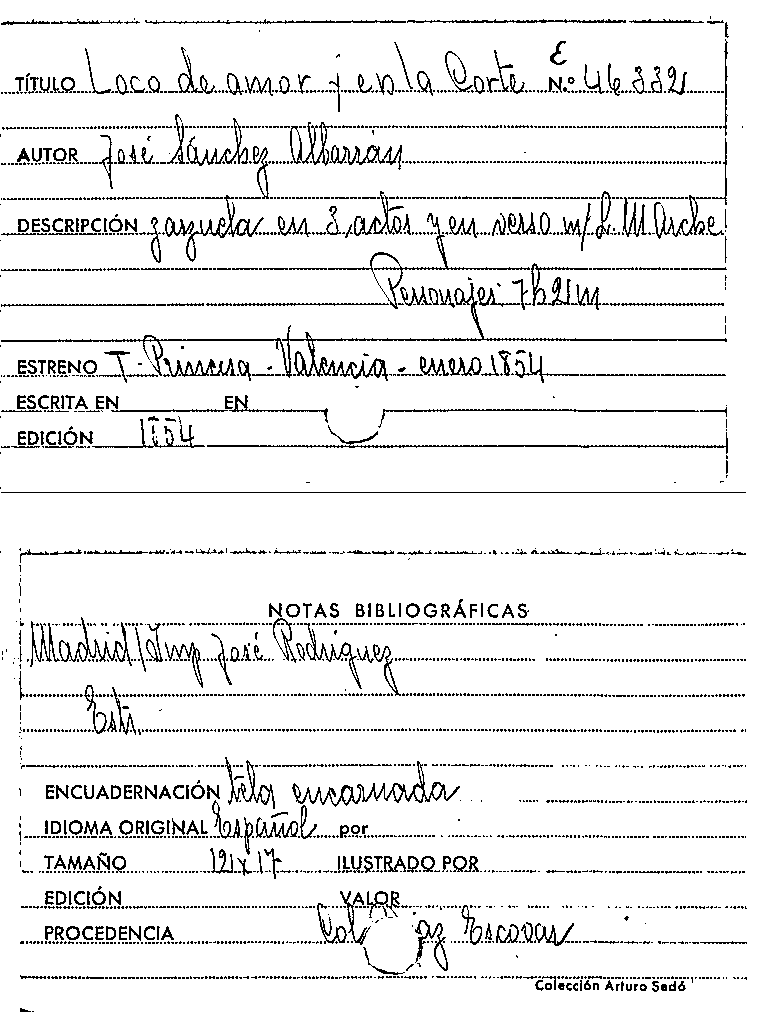 ε
TÍTULO Loco de amor y en la Corte N.º 463321
AUTOR José Sánchez Albarrán
DESCRIPCIÓN zarzuela en 3 actos y en verso m/ L. M Arche
Personajes 7h 2m
ESTRENO T. Princesa - Valencia - enero 1854
ESCRITA EN EN
EDICIÓN 1854
NOTAS BIBLIOGRÁFICAS
Madrid/Imp José Rodríguez
Estr.
ENCUADERNACIÓN tela encarnada
IDIOMA ORIGINAL Español por
TAMAÑO 121x17 ILUSTRADO POR
EDICIÓN VALOR
PROCEDENCIA Col az Escovar
Colección Arturo Sedó